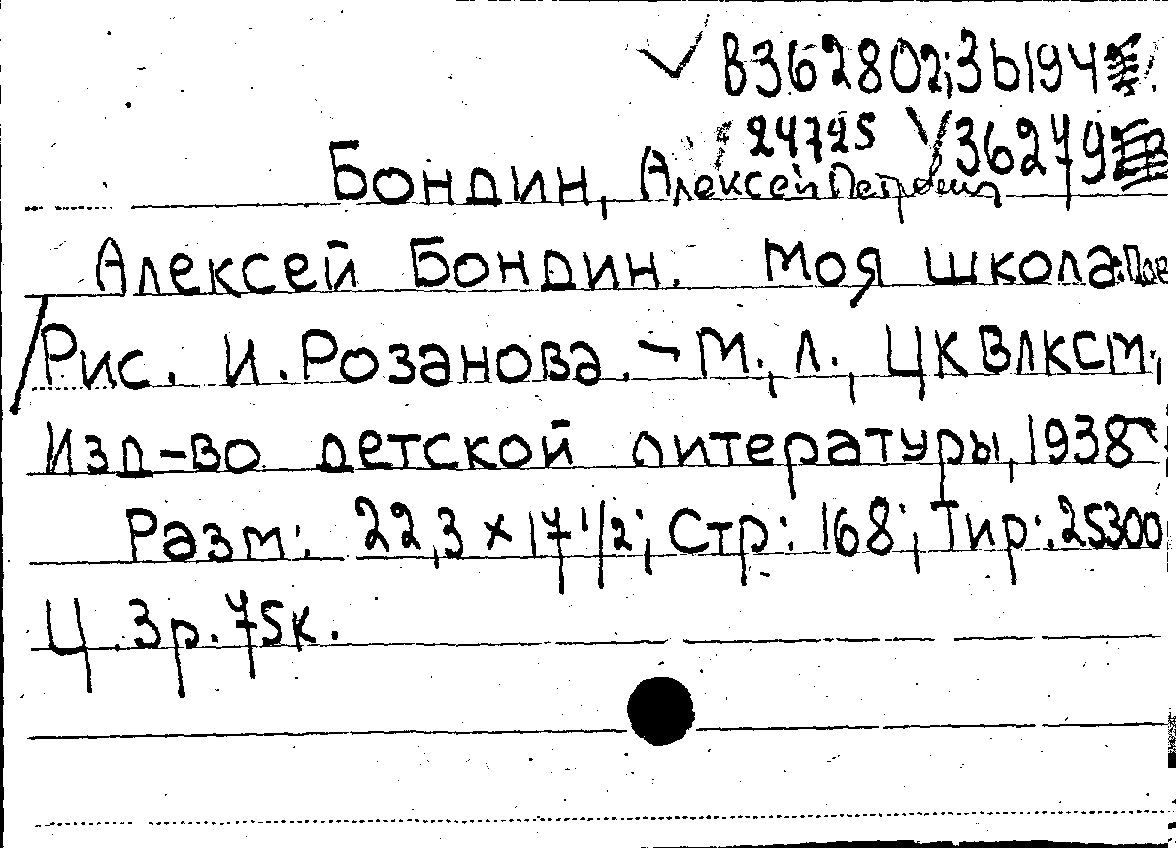 В362802; 36194
24725 36279
Бондин, Алексей Петрович
Алексей Бондин. Моя школа.
Рис. И. Розанова. - М., Л., ЦК ВЛКСМ,
Изд-во детской литературы, 1938
Разм: 22,3 х 17 1/2; Стр: 168; Тир: 25300
Ц. 3р. 75к.